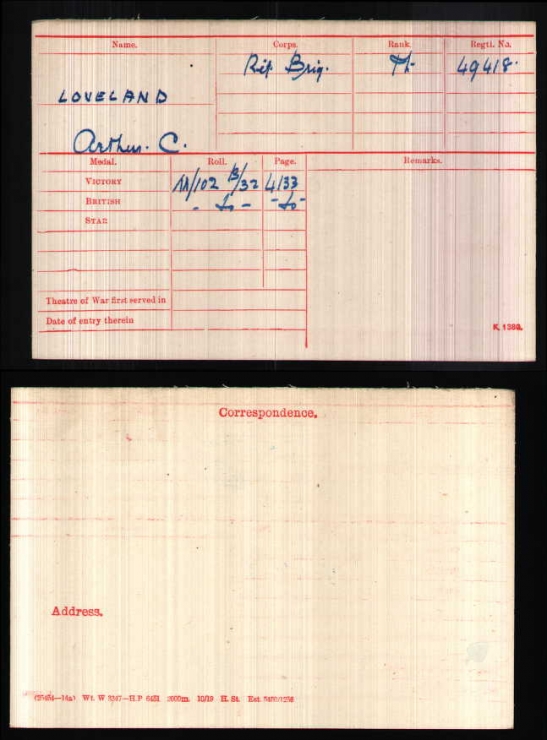 Name. Corps. Rank. Regtl. No.
Rif. Brig. Pte 49418.
LOVELAND
Arthur. C.
Medal. Roll. Page. Remarks.
VICTORY /102 B/32 4133
BRITISH - do - - do -
STAR
Theatre of War first served in
Date of entry therein
K. 1380.
Correspondence.
Address.
Wt. W 2000m. 10/19 H. St.